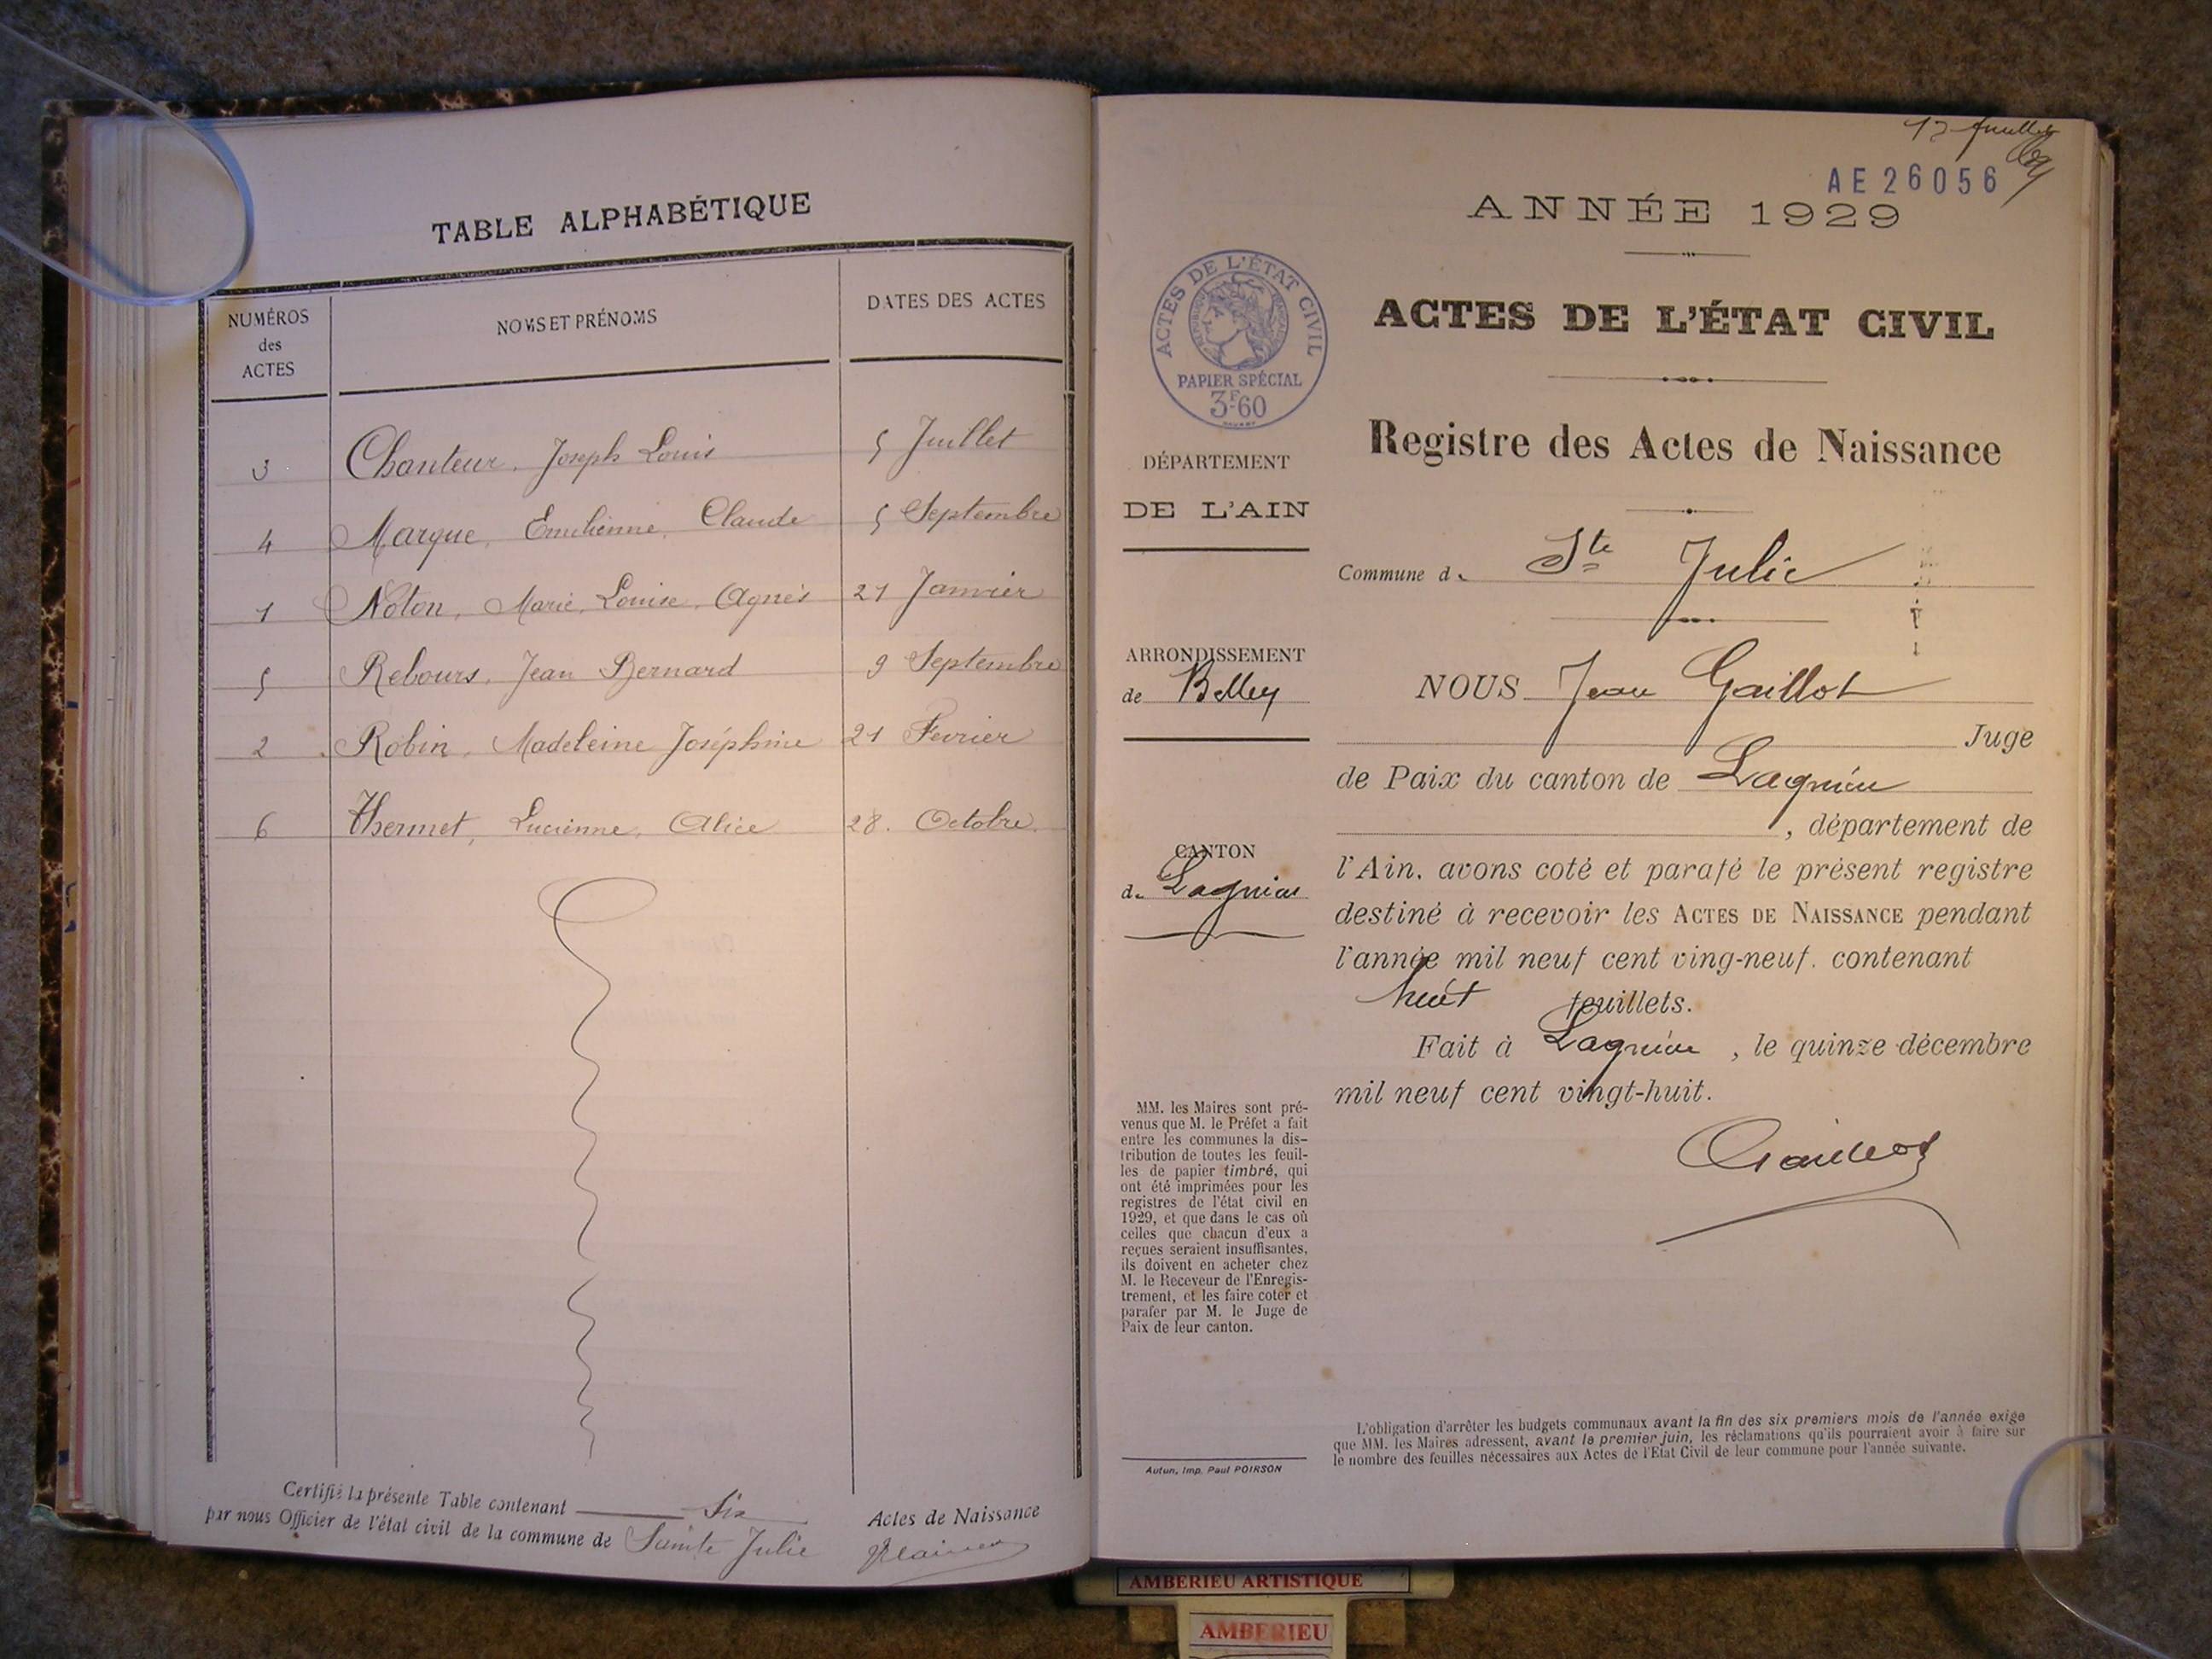 TABLE ALPHABÉTIQUE
NUMÉROS
des
ACTES
NOMS ET PRÉNOMS
DATES DES ACTES
3 Chanteur, Joseph Louis 5 Juillet
4 Marque, Emilienne, Claude 5 Septembre
1 Noton, Marie, Louise, Agnès 21 Janvier
5 Rebours, Jean Bernard 9 Septembre
2 Robin, Madeleine Joséphine 21 Fevrier
6 Thermet, Lucienne, Alice 28. Octobre.
Certifié la présente Table contenant Six Actes de Naissance
par nous Officier de l'état civil de la commune de Sainte Julie
AE26056
ANNÉE 1929
ACTES DE L'ÉTAT CIVIL
PAPIER SPÉCIAL
3F60
ACTES DE L'ÉTAT CIVIL
Registre des Actes de Naissance
DÉPARTEMENT
DE L'AIN
Commune de Ste Julie
ARRONDISSEMENT
de Belley
NOUS Jean Gaillot
Juge
de Paix du canton de Lagnieu
, département de
CANTON
de Lagnieu
l'Ain, avons coté et parafé le présent registre
destiné à recevoir les ACTES DE NAISSANCE pendant
l'année mil neuf cent ving-neuf. contenant
huit feuillets.
Fait à Lagnieu, le quinze décembre
mil neuf cent vingt-huit.
Gaillot
MM. les Maires sont pré-
venus que M. le Préfet a fait
entre les communes la dis-
tribution de toutes les feuil-
les de papier timbré, qui
ont été imprimées pour les
registres de l'état civil en
1929, et que dans le cas où
celles que chacun d'eux a
reçues seraient insuffisantes,
ils doivent en acheter chez
M. le Receveur de l'Enregis-
trement, et les faire coter et
parafer par M. le Juge de
Paix de leur canton.
Autun, Imp. Paul POIRSON
L'obligation d'arrêter les budgets communaux avant la fin des six premiers mois de l'année exige
que MM. les Maires adressent, avant le premier juin, les réclamations qu'ils pourraient avoir à faire sur
le nombre des feuilles nécessaires aux Actes de l'Etat Civil de leur commune pour l'année suivante.
AMBERIEU ARTISTIQUE
AMBERIEU